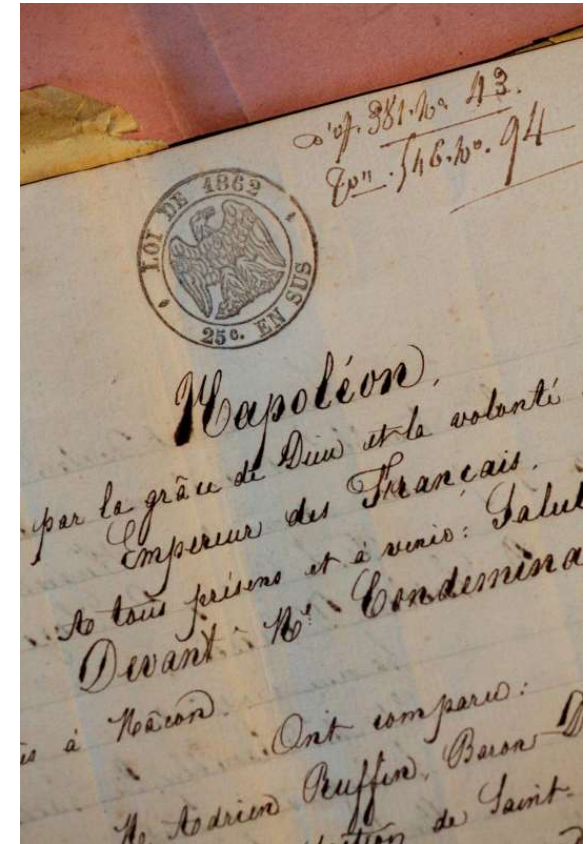 381. No. 43.
546. No. 94
LOI DE 1862
25c. EN SUS
Napoléon,
par la grâce de Dieu et la volonté
Empereur des Français,
A tous présens et à venir: Salut
Devant Me Condemina
à Mâcon
Ont comparu:
M. Adrien Ruffin, Baron D
de Saint-